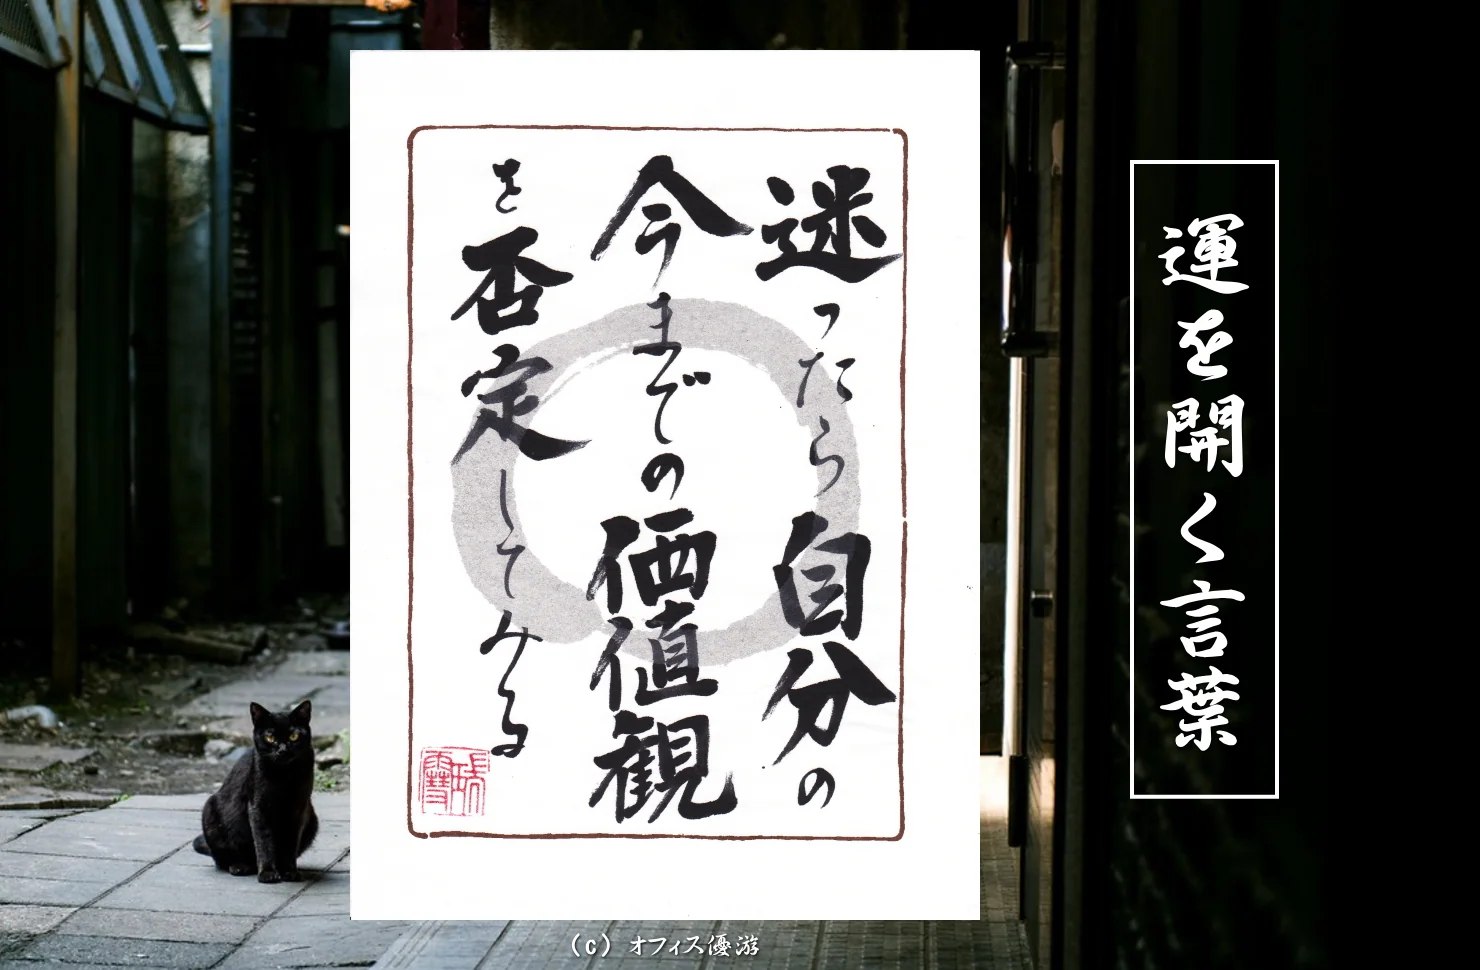 運を開く言葉
迷ったら自分の
今までの価値観
を否定してみる
(c) オフィス優游